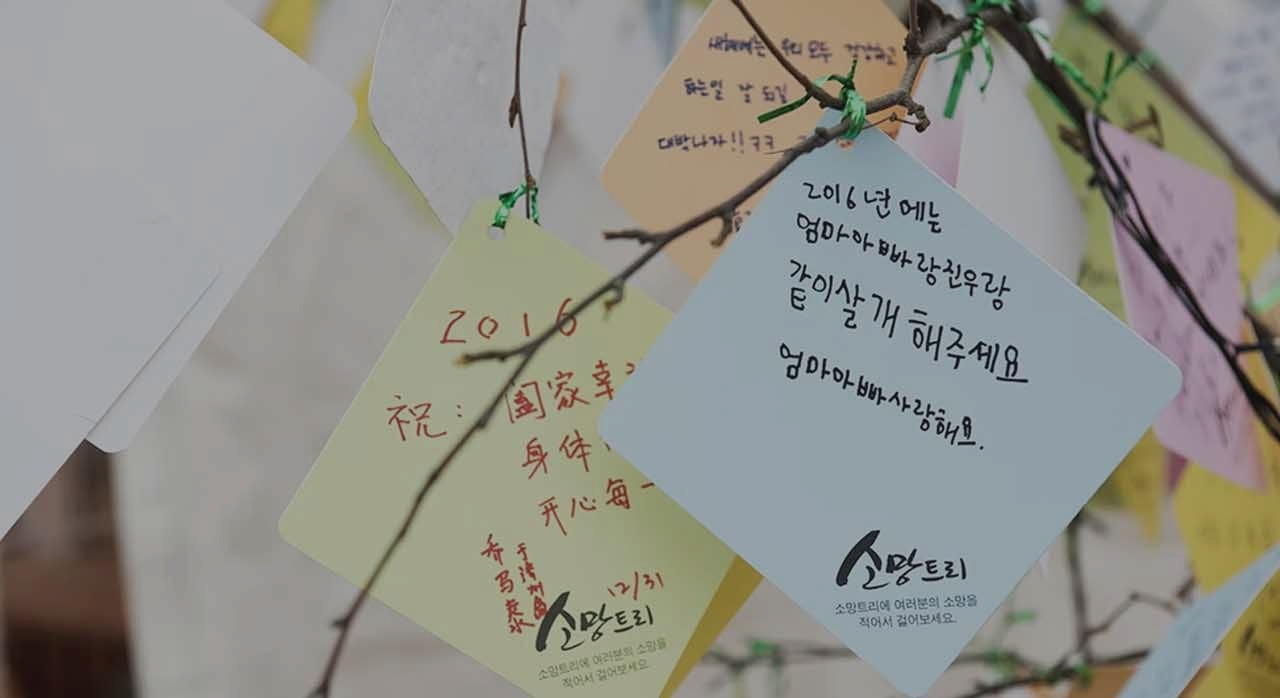 새해에는 우리 모두 건강하고
하는일 잘 되길
대박나자!! ㅋㅋ
2016년에는
엄마아빠랑진우랑
같이살개 해주세요
엄마아빠사랑해요.
소망트리
소망트리에 여러분의 소망을
적어서 걸어보세요.
2016
祝: 阖家幸
身体
开心每一
12/31
소망트리
소망트리에 여러분의 소망을
적어서 걸어보세요.